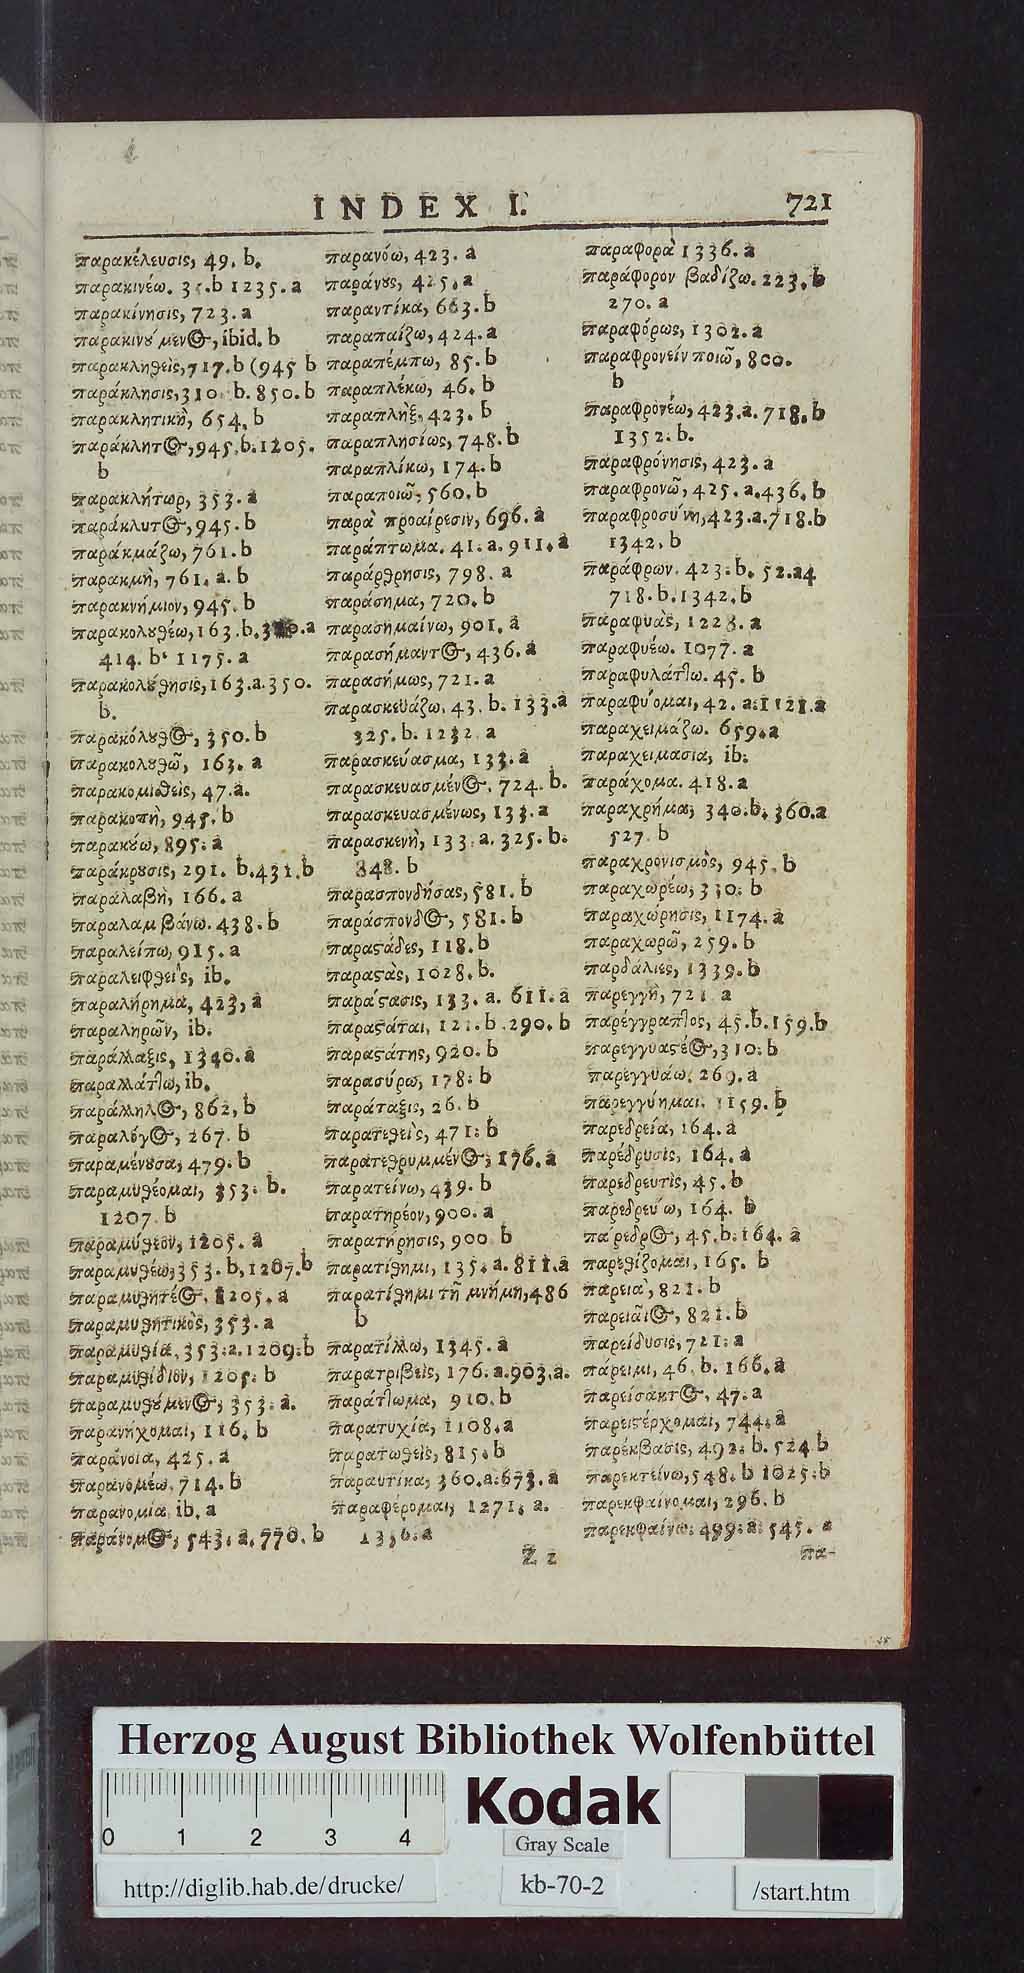 INDEX I. 721
παρακέλευσις, 49. b.
παρακινέω. 35.b 1235.a
παρακίνησις, 723.a
παρακινούμενος, ibid. b
παρακληθεὶς, 717.b (945 b
παράκλησις, 310. b. 850.b
παρακλητικὴ, 654. b
παράκλητος, 945. b. 1205.
b
παρακλήτωρ, 353. a
παράκλυτος, 945. b
παράκμάζω, 761. b
παρακμὴ, 761. a. b
παρακνήμιον, 945. b
παρακολουθέω, 163. b. .a
414. b. 1175. a
παρακολούθησις, 163.a. 350.
b.
παρακόλουθος, 350. b
παρακολουθῶ, 163. a
παρακομισθεὶς, 47. a.
παρακοπὴ, 945. b
παρακούω, 895. a
παράκρουσις, 291. b. 431. b
παραλαβὴ, 166. a
παραλαμβάνω. 438. b
παραλείπω, 915. a
παραλειφθεὶς, ib.
παραλήρημα, 423, a
παραληρῶν, ib.
παράλλαξις, 1340. a
παραλλάττω, ib.
παράλληλος, 862, b
παραλόγος, 267. b
παραμένουσα, 479. b
παραμυθέομαι, 353. b.
1207. b
παραμύθεον, 1205. a
παραμυθέω, 353. b, 1207. b
παραμυθητέος. 1205. a
παραμυθητικὸς, 353. a
παραμυθία, 353. a. 1209. b
παραμυθίδιον, 1205. b
παραμυθούμενος, 353. a.
παρανήχομαι, 116. b
παράνοια, 425. a
παρανομέω, 714. b
παρανομία ib. a
παράνομος, 543. a. 770. b
παρανόω, 423. a
παράνους, 425. a
παραντίκα, 663. b
παραπαίζω, 424. a
παραπέμπω, 85. b
παραπλέκω, 46. b
παραπλὴξ, 423. b
παραπλησίως, 748. b
παραπλίκω, 174. b
παραποιῶ, 560. b
παρὰ προαίρεσιν, 696. a
παράπτωμα. 41. a. 911. a
παράρθρησις, 798. a
παράσημα, 720. b
παρασημαίνω, 901. a
παρασήμαντος, 436. a
παρασήμως, 721. a
παρασκευάζω. 43. b. 133. a
325. b. 1232. a
παρασκεύασμα, 133. a
παρασκευασμένος. 724. b.
παρασκευασμένως, 133. a
παρασκευὴ, 133. a. 325. b.
848. b
παρασπονδήσας, 581. b
παράσπονδος, 581. b
παραστάδες, 118. b
παραστὰς, 1028. b.
παράστασις, 133. a. 611. a
παραστάται, 121. b. 290. b
παραστάτης, 920. b
παρασύρω, 178. b
παράταξις, 26. b
παρατεθεὶς, 471. b
παρατεθρυμμένος, 176. a
παρατείνω, 439. b
παρατηρέον, 900. a
παρατήρησις, 900. b
παρατίθημι, 135. a. 811. a
παρατίθημι τῇ μνήμῃ, 486
b
παρατίλλω, 1345. a
παρατριβεὶς, 176. a. 903. a.
παράττωμα, 910. b
παρατυχία, 1108. a
παρατωθεὶς, 815. b
παραυτίκα, 360. a. 673. a
παραφέρομαι, 1271. a.
1336. a
παραφορὰ 1336. a
παράφορον βαδίζω. 223. b
270. a
παραφόρως, 1302. a
παραφρονεῖν ποιῶ, 800.
b
παραφρονέω, 423. a. 718. b
1352. b.
παραφρόνησις, 423. a
παραφρονῶ, 425. a. 436. b
παραφροσύνη, 423. a. 718. b
1342. b
παράφρων. 423. b. 52. a4
718. b. 1342. b
παραφυὰς, 1228. a
παραφυέω. 1077. a
παραφυλάττω. 45. b
παραφύομαι, 42. a. 1121. a
παραχειμάζω. 659. a
παραχειμασία, ib.
παράχομα. 418. a
παραχρῆμα, 340. b. 360. a
527. b
παραχρονισμὸς, 945. b
παραχωρέω, 330. b
παραχώρησις, 1174. a
παραχωρῶ, 259. b
παρδάλιες, 1339. b
παρεγγὴ, 721 a
παρέγγραπτος, 45. b. 159. b
παρεγγυαστέος, 310. b
παρεγγυάω. 269. a
παρεγγύημαι. 1159. b
παρεδρεία, 164. a
παρέδρυσις, 164. a
παρεδρευτὶς, 45. b
παρεδρεύω, 164. b
πάρεδρος, 45. b. 164. a
παρεθίζομαι, 165. b
παρειὰ, 821. b
παρειᾶιος, 821. b
παρείδυσις, 721. a
πάρειμι, 46. b. 166. a
παρείσακτος, 47. a
παρεισέρχομαι, 744. a
παρέκβασις, 492. b. 524. b
παρεκτείνω, 548. b 1025. b
παρεκφαίνομαι, 296. b
παρεκφαίνω. 499. a. 545. a
Z z
πα-
Herzog August Bibliothek Wolfenbüttel
0 1 2 3 4
Kodak
Gray Scale
http://diglib.hab.de/drucke/
kb-70-2
/start.htm